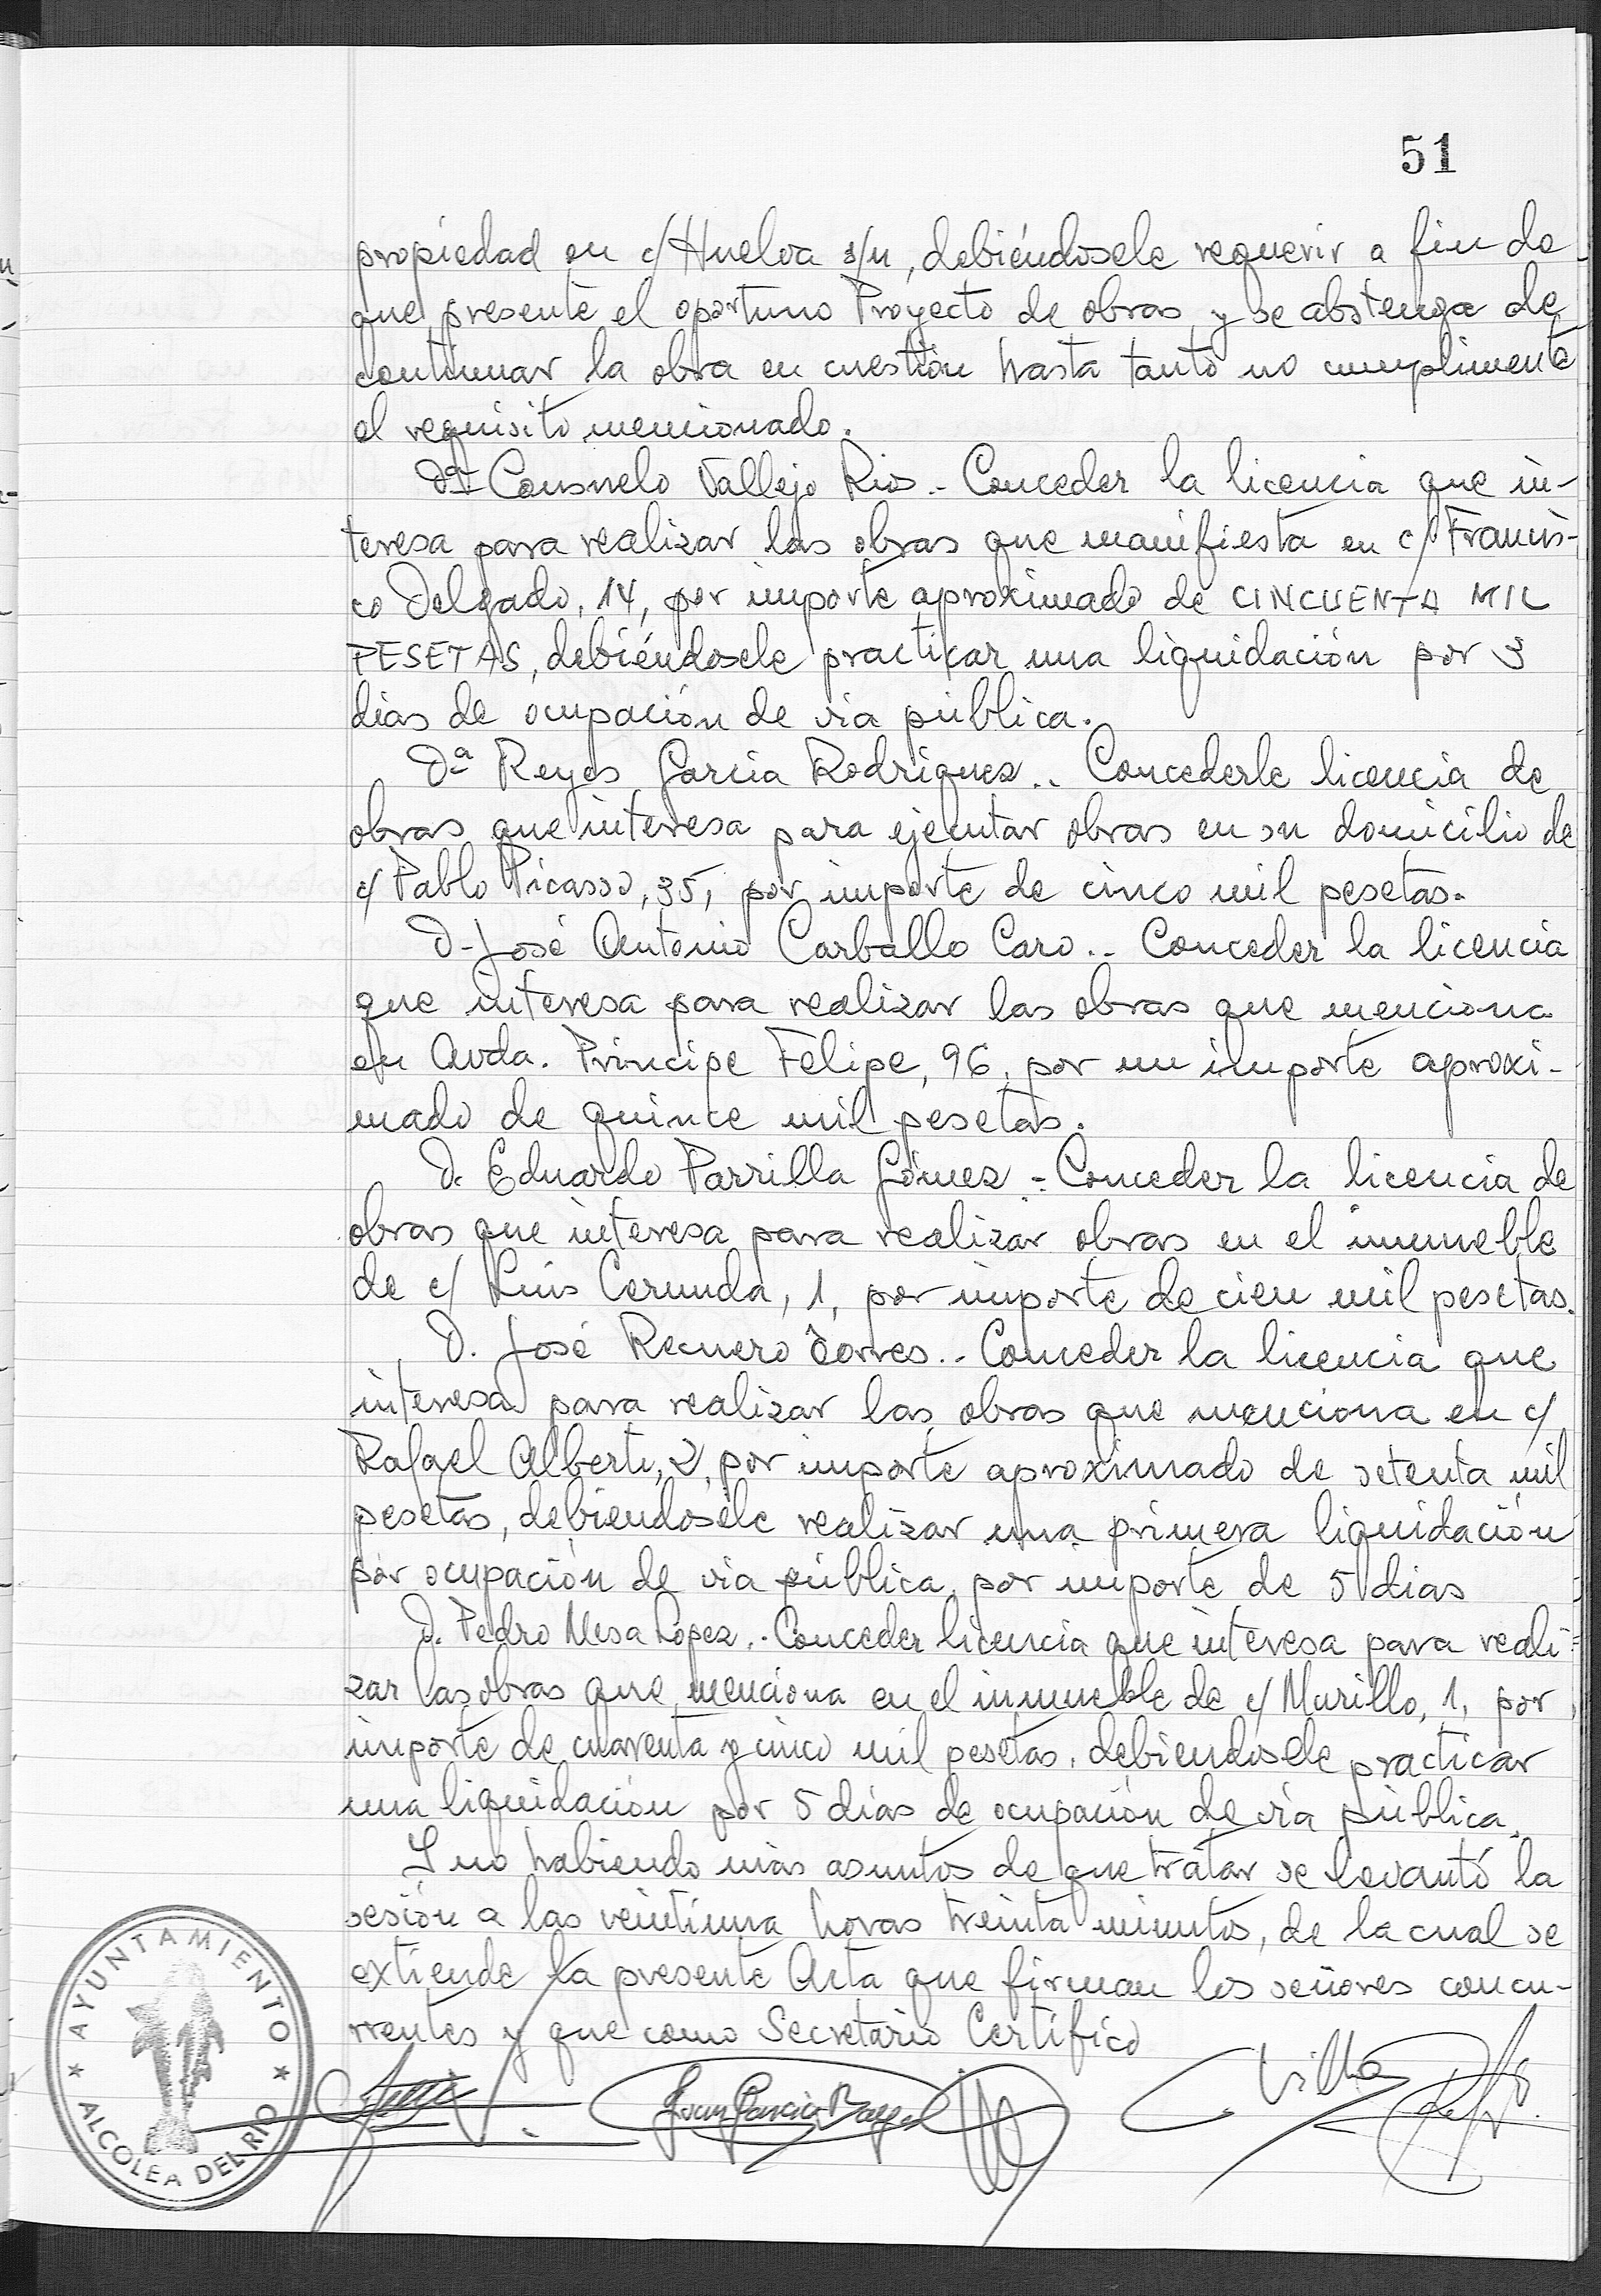 51
propiedad en c/ Huelva s/n, debiéndosele requerir a fin de
que presente el oportuno Proyecto de obras, y se abstenga de
continuar la obra en cuestión hasta tanto no cumplimente
el requisito mencionado.
Dª Consuelo Vallejo Rios.- Conceder la licencia que in-
teresa para realizar las obras que manifiesta en c/ Francis-
co Delgado, 14, por importe aproximado de CINCUENTA MIL
PESETAS, debiéndosele practicar una liquidación por 3
dias de ocupación de via pública.
Dª Reyes Garcia Rodriguez.- Concederle licencia de
obras que interesa para ejecutar obras en su domicilio de
c/ Pablo Picasso, 35, por importe de cinco mil pesetas.
D. José Antonio Carballo Caro.- Conceder la licencia
que interesa para realizar las obras que menciona
en Avda. Principe Felipe, 96, por un importe aproxi-
mado de quince mil pesetas.
D. Eduardo Parrilla Gómez.- Conceder la licencia de
obras que interesa para realizar obras en el inmueble
de c/ Luis Cernuda, 1, por importe de cien mil pesetas.
D. José Recuero Torres.- Conceder la licencia que
interesa para realizar las obras que menciona en c/
Rafael Alberti, 2, por importe aproximado de setenta mil
pesetas, debiendosele realizar una primera liquidación
por ocupación de via pública, por importe de 5 dias
D. Pedro Mesa López.- Conceder licencia que interesa para reali-
zar las obras que menciona en el inmueble de c/ Murillo, 1, por
importe de cuarenta y cinco mil pesetas, debiendosele practicar
una liquidación por 5 dias de ocupación de via pública.
Y no habiendo más asuntos de que tratar se levantó la
sesión a las veintiuna horas treinta minutos, de la cual se
extiende la presente Acta que firman los señores concu-
rrentes y que como Secretario Certifico
Juan Garcia
Villa
AYUNTAMIENTO
ALCOLEA DEL RIO